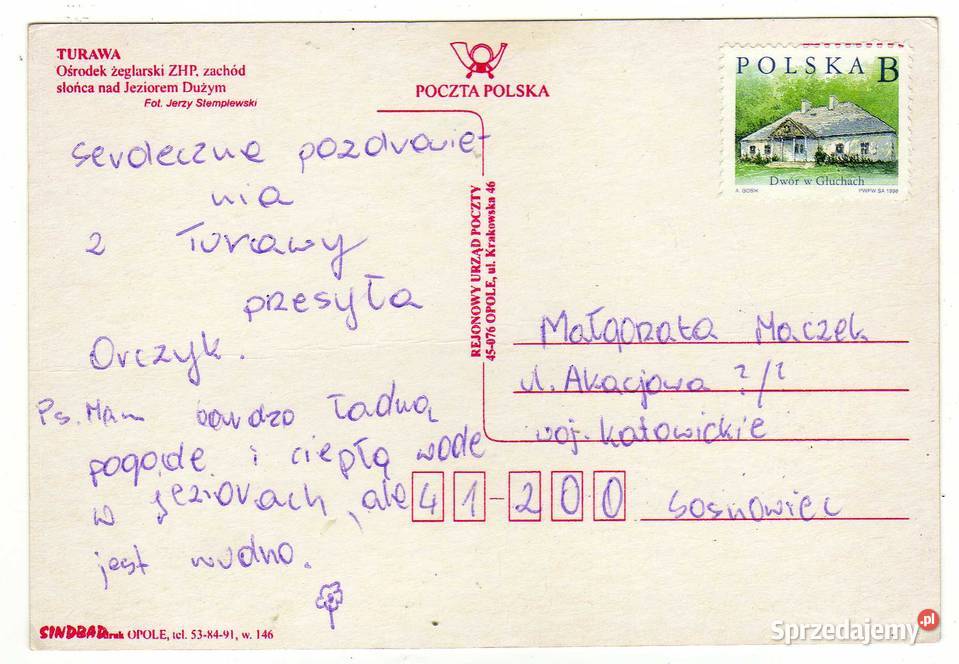 TURAWA
Ośrodek żeglarski ZHP, zachód
słońca nad Jeziorem Dużym
Fot. Jerzy Stemplewski
POCZTA POLSKA
POLSKA B
Dwór w Głuchach
A. GOSIK
PWPW SA 1998
serdeczne pozdrowie-
nia
z Turawy
przesyła
Orczyk.
Ps. Mam bardzo ładną
pogodę i ciepłą wodę
w jeziorach, ale
jest nudno.
REJONOWY URZĄD POCZTY
45-076 OPOLE, ul. Krakowska 46
Małgorzata Maczek
ul. Akacjowa ?/?
woj. katowickie
41-200 Sosnowiec
SINDBAD druk OPOLE, tel. 53-84-91, w. 146
Sprzedajemy.pl